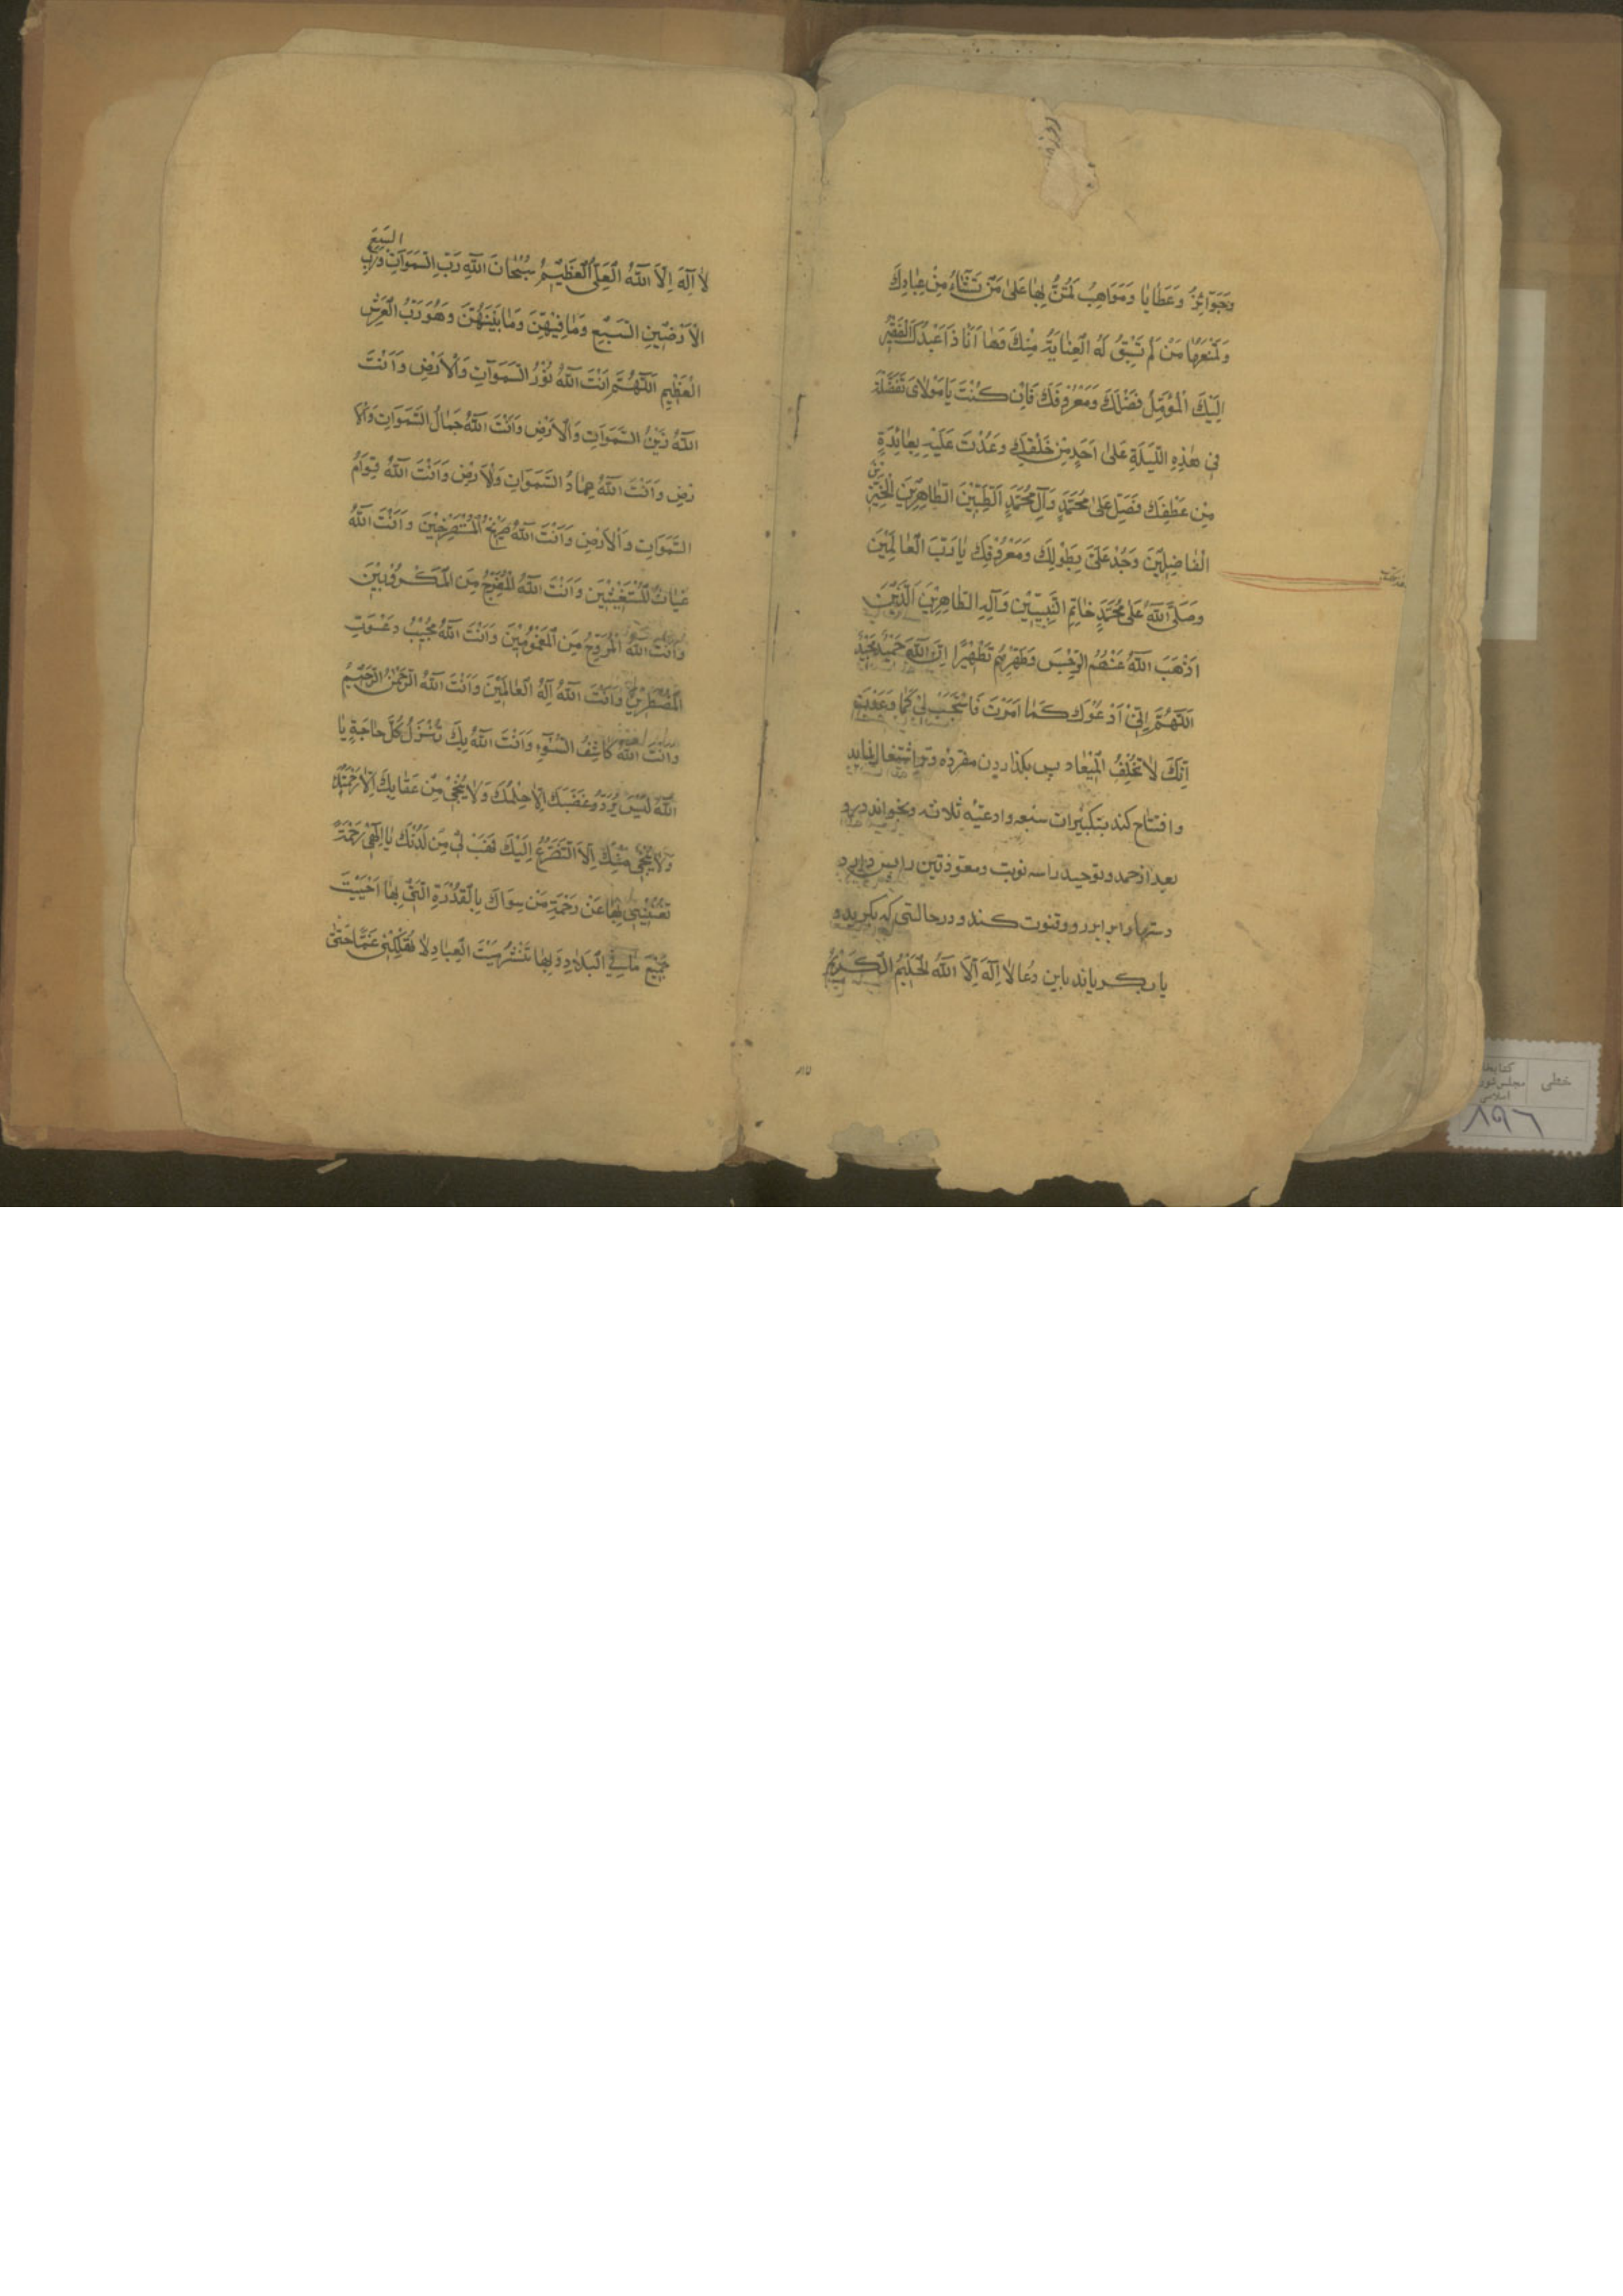 وَجَوَآئِزُ وَعَطٰايٰا وَمَوَاهِبُ تَمُنُّ بِهٰا عَلىٰ مَنْ تَشٰآءُ مِنْ عِبٰادِكَ
وَتَمْنَعُهٰا مَنْ لَمْ تَسْبِقْ لَهُ الْعِنٰايَةُ مِنْكَ وَهٰا اَنَا ذٰا عَبْدُكَ الْفَقِيْرُ
اِلَيْكَ الْمُؤَمِّلُ فَضْلَكَ وَمَعْرُوْفَكَ فَاِنْ كُنْتَ يٰا مَوْلاٰىَ تَفَضَّلْتَ
فِىْ هٰذِهِ اللَّيْلَةِ عَلىٰ اَحَدٍ مِنْ خَلْقِكَ وَعُدْتَ عَلَيْهِ بِعٰائِدَةٍ
مِنْ عَطْفِكَ فَصَلِّ عَلىٰ مُحَمَّدٍ وَآلِ مُحَمَّدٍ اَلطَّيِّبِيْنَ الطّٰاهِرِيْنَ الْخَيِّرِيْنَ
الْفٰاضِلِيْنَ وَجُدْ عَلَىَّ بِطَوْلِكَ وَمَعْرُوْفِكَ يٰا رَبَّ الْعٰالَمِيْنَ
وَصَلَّى اللّٰهُ عَلىٰ مُحَمَّدٍ خٰاتِمِ النَّبِيّيْنَ وَآلِهِ الطّٰاهِرِيْنَ الَّذِيْنَ
اَذْهَبَ اللّٰهُ عَنْهُمُ الرِّجْسَ وَطَهَّرَهُمْ تَطْهِيْرًا اِنَّ اللّٰهَ حَمِيْدٌ مَجِيْدٌ
اَللّٰهُمَّ اِنِّىْ اَدْعُوْكَ كَمٰا اَمَرْتَ فَاسْتَجِبْ لِىْ كَمٰا وَعَدْتَ
اِنَّكَ لاٰ تُخْلِفُ الْمِيْعٰادَ پس بكذاردن مفرده وتر اشتغال نمايد
و افتتاح كند بتكبيرات سبعه و ادعيّه ثلاثه و بخواند درو
بعد از حمد و توحيد را سه نوبت و معوّذتين را پس دارد
دستها را برابر رو و قنوت كند و در حالتى كه بكريد و
يا بكرياند باين دُعا لاٰ اِلٰهَ اِلاَّ اللّٰهُ الْحَلِيْمُ الْكَرِيْمُ
لاٰ اِلٰهَ اِلاَّ اللّٰهُ الْعَلِىُّ الْعَظِيْمُ سُبْحٰانَ اللّٰهِ رَبِّ السَّمَوَاتِ السَّبْعِ وَرَبِّ
الْاَرَضِيْنَ السَّبْعِ وَمٰا فِيْهِنَّ وَمٰا بَيْنَهُنَّ وَهُوَ رَبُّ الْعَرْشِ
الْعَظِيْمِ اَللّٰهُمَّ اَنْتَ اللّٰهُ نُوْرُ السَّمَوَاتِ وَالْاَرْضِ وَاَنْتَ
اللّٰهُ زَيْنُ السَّمَوَاتِ وَالْاَرْضِ وَاَنْتَ اللّٰهُ جَمٰالُ السَّمَوَاتِ وَالْاَ
رْضِ وَاَنْتَ اللّٰهُ عِمٰادُ السَّمَوَاتِ وَالْاَرْضِ وَاَنْتَ اللّٰهُ قِوَامُ
السَّمَوَاتِ وَالْاَرْضِ وَاَنْتَ اللّٰهُ صَرِيْخُ الْمُسْتَصْرِخِيْنَ وَاَنْتَ اللّٰهُ
غِيٰاثُ الْمُسْتَغِيْثِيْنَ وَاَنْتَ اللّٰهُ الْمُفَرِّجُ مِنَ الْمَكْرُوْبِيْنَ
وَاَنْتَ اللّٰهُ الْمُرَوِّحُ مِنَ الْمَغْمُوْمِيْنَ وَاَنْتَ اللّٰهُ مُجِيْبُ دَعْوَتِ
الْمُضْطَرِّيْنَ وَاَنْتَ اللّٰهُ اِلٰهُ الْعٰالَمِيْنَ وَاَنْتَ اللّٰهُ الرَّحْمٰنُ الرَّحِيْمُ
وَاَنْتَ اللّٰهُ كٰاشِفُ السُّوْءِ وَاَنْتَ اللّٰهُ بِكَ تُنْزَلُ كُلُّ حٰاجَةٍ يٰا
اَللّٰهُ لَيْسَ يَرُدُّ غَضَبَكَ اِلاّٰ حِلْمُكَ وَلاٰ يُنْجِىْ مِنْ عِقٰابِكَ اِلاّٰ رَحْمَتُكَ
وَلاٰ يُنْجِىْ مِنْكَ اِلاَّ التَّضَرُّعُ اِلَيْكَ فَهَبْ لِىْ مِنْ لَدُنْكَ يٰا اِلٰهِىْ رَحْمَةً
تُغْنِيْنِىْ بِهٰا عَنْ رَحْمَةِ مَنْ سِوَاكَ بِالْقُدْرَةِ الَّتِىْ بِهٰا اَحْيَيْتَ
جَمِيْعَ مٰا فِى الْبِلاٰدِ وَبِهٰا تَنْشُرُ مَيْتَ الْعِبٰادِ لاٰ تُهْلِكْنِىْ غَمًّا حَتّىٰ
خطى
مجلس شور
اسلامى
٨٩٦